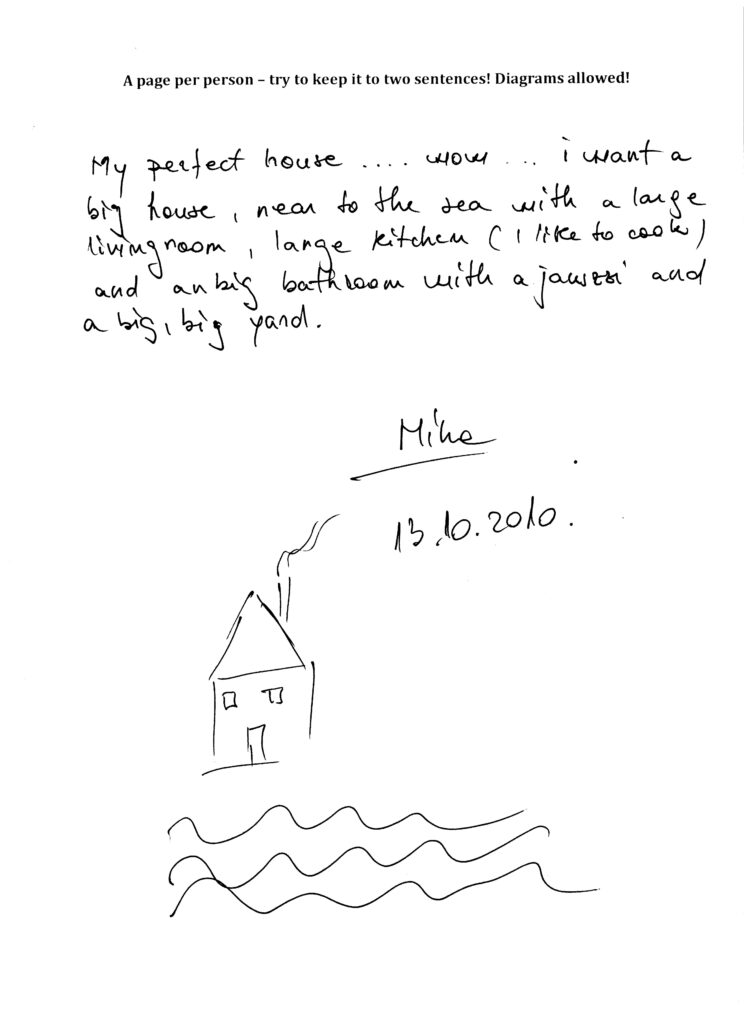 A page per person – try to keep it to two sentences! Diagrams allowed!
My perfect house .... wow ... i want a
big house, near to the sea with a large
livingroom, large kitchen (I like to cook)
and an big bathroom with a and
a big, big yard.
13.10.2010.